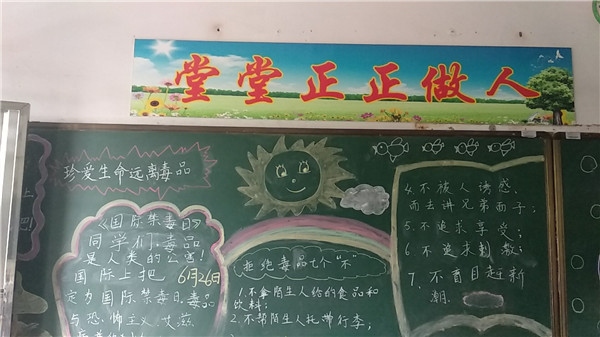 堂堂正正做人
珍爱生命远离毒品
《国际禁毒日》
同学们毒品
是人类的公害!
国际上把 6月26日
定为国际禁毒日,毒品
与恐怖主义、艾滋
拒绝毒品七个"不"
1.不拿陌生人给的食品和
饮料;
2.不帮陌生人托带行李;
4.不被人诱惑
而去讲兄弟面子;
5.不追求享受;
6.不追求刺激;
7.不盲目赶新
潮.